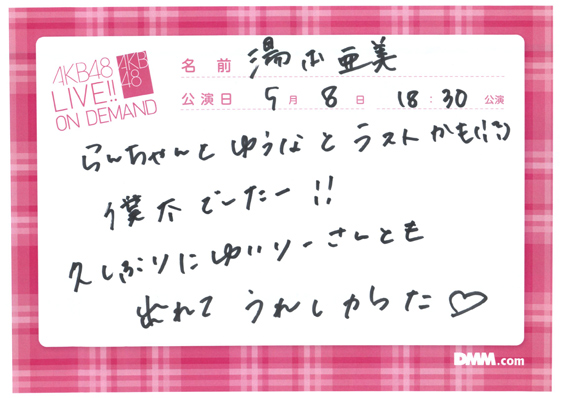 AKB48
LIVE!!
ON DEMAND
AKB
48
名前 湯本亜美
公演日 5月8日 18:30公演
らんちゃんと ゆうなと ラストかも(!?)
僕太でしたー!!
久しぶりに ゆいりーさんとも
出れて うれしかった♡
DMM.com